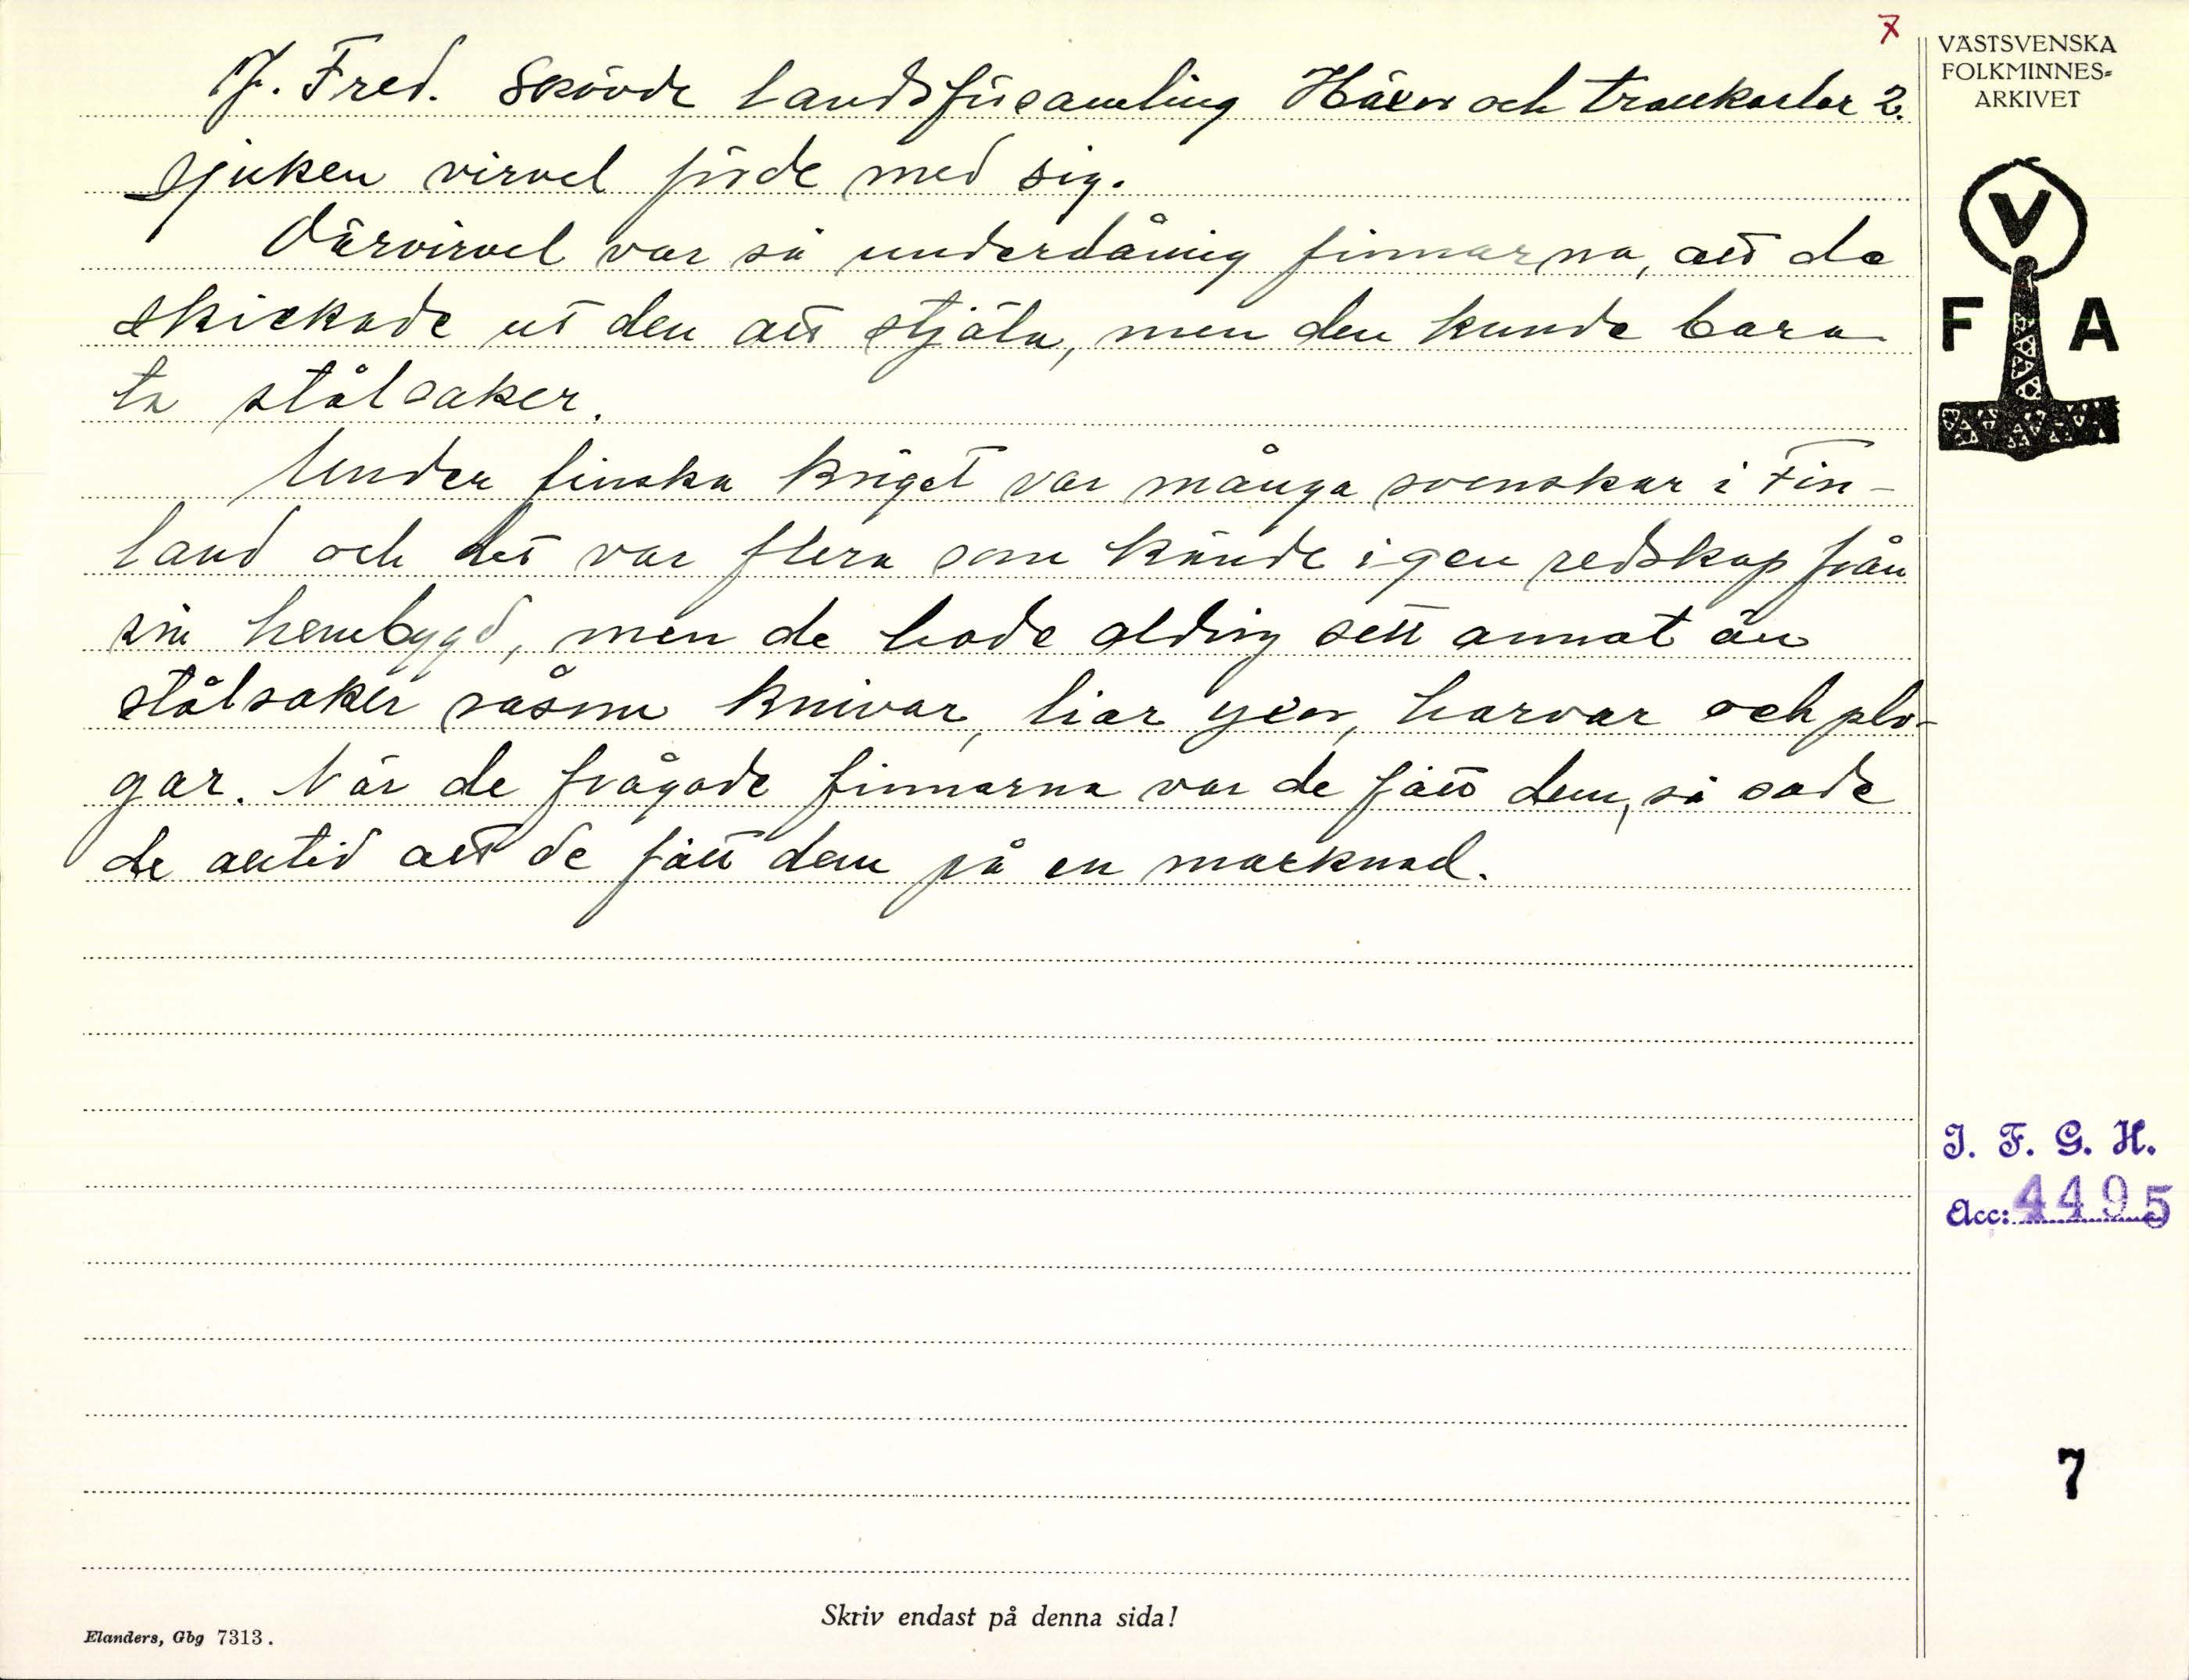 7
J. Fred. Skövde landsförsamling Häxor och trollkarlar 2.
sjuken virvel förde med sig.
Värvirvel var så underdånig finnarna, att de
skickade ut den att stjäla, men den kunde bara
ta stålsaker.
Under finska kriget var många svenskar i Fin-
land och det var flera som kände igen redskap från
sin hembygd, men de hade alldrig sett annat än
stålsaker såsom knivar, liar yxor, harvar och plo-
gar. När de frågade finnarna var de fått dem, så sade
de alltid att de fått dem på en marknad.
VÄSTSVENSKA
FOLKMINNES-
ARKIVET
V
F A
I. F. G. H.
Acc: 4495
7
Skriv endast på denna sida!
Elanders, Gbg 7313.